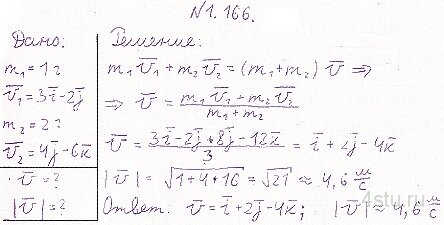 N 1. 166.
Дано:
m₁ = 1 г
v̅₁ = 3i̅ - 2j̅
m₂ = 2 г
v̅₂ = 4j̅ - 6k̅
v̅ = ?
|v̅| = ?
Решение:
m₁ v̅₁ + m₂ v̅₂ = (m₁ + m₂) v̅ ⇒
⇒ v̅ = (m₁ v̅₁ + m₂ v̅₂) / (m₁ + m₂)
v̅ = (3i̅ - 2j̅ + 8j̅ - 12k̅) / 3 = i̅ + 2j̅ - 4k̅
|v̅| = √(1 + 4 + 16) = √21 ≈ 4,6 м/с
Ответ: v̅ = i̅ + 2j̅ - 4k̅; |v̅| ≈ 4,6 м/с
4stu.ru